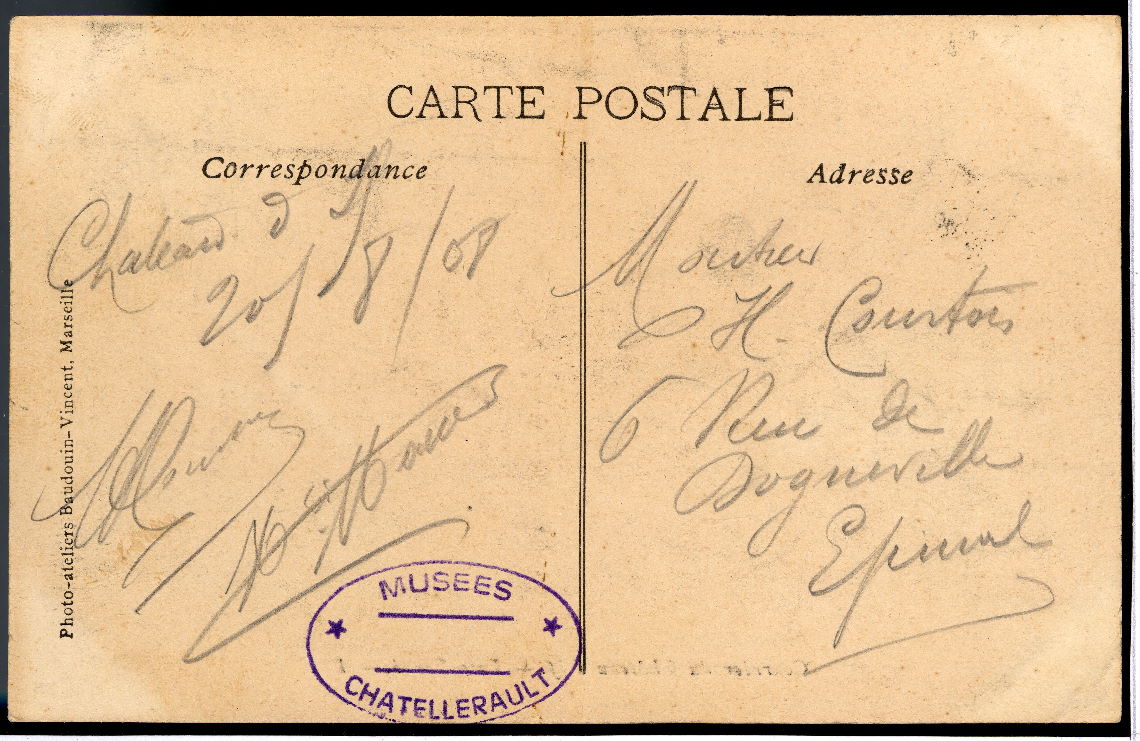 CARTE POSTALE
Correspondance
Adresse
Chateau d'If
20/8/08
Monsieur
H. Courtois
6 Rue de
Dogneville
Epinal
Photo-ateliers Baudouin-Vincent, Marseille
MUSEES
CHATELLERAULT